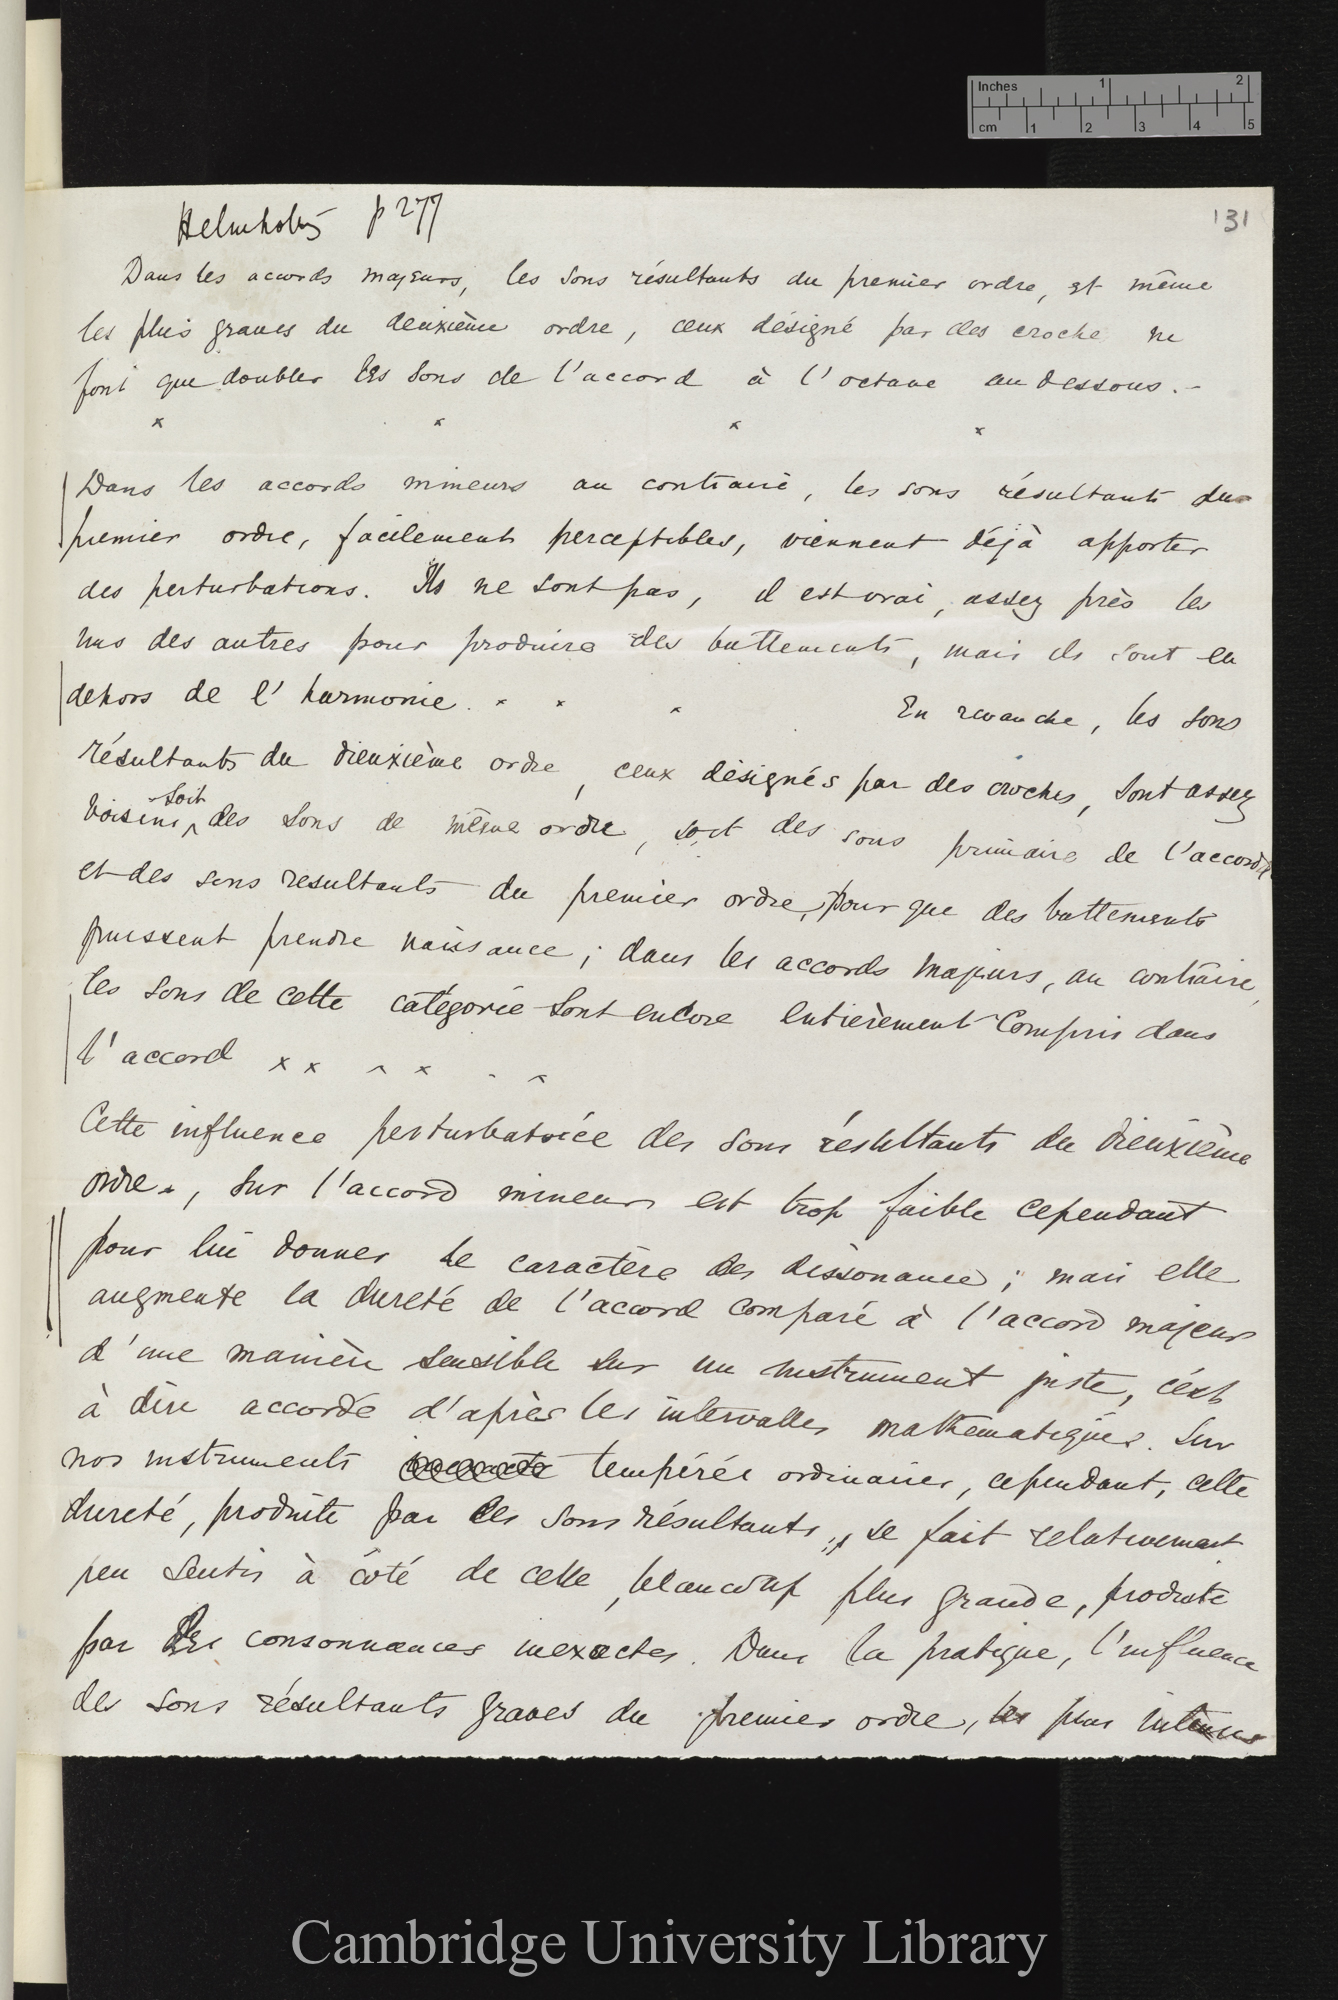 Inches 1 2
cm 1 2 3 4 5
Helmholtz p 277
131
Dans les accords majeurs, les sons résultants du premier ordre, et même
les plus graves du deuxième ordre, ceux désigné par des croche ne
font que doubler les sons de l'accord à l'octave au dessous. -
x x x x
Dans les accords mineurs au contraire, les sons résultants du
premier ordre, facilement perceptibles, viennent déjà apporter
des perturbations. Ils ne sont pas, il est vrai, assez près les
uns des autres pour produire des battements, mais ils sont en
dehors de l'harmonie. x x x En revanche, les sons
résultants du dieuxième ordre, ceux désignés par des croches, sont assez
soit
voisins ^ des sons de même ordre, soit des sons primaire de l'accord
et des sons resultants du premier ordre, pour que des battements
puissent prendre naissance; dans les accords majeurs, au contraire,
les sons de cette catégorie sont encore entièrement compris dans
l'accord x x x x - x
Cette influence perturbatrice des sons résultants du dieuxième
ordre, sur l'accord mineur est trop faible cependant
pour lui donner le caractère des dissonance; mais elle
augmente la dureté de l'accord comparé à l'accord majeur
d'une manière sensible sur un instrument juste, c'est
à dire accordé d'après les intervalles mathematiques. Sur
nos instruments tempérés ordinaires, cependant, cette
dureté, produite par les sons résultants, se fait relativement
peu sentir à côté de celle, beaucoup plus grande, produite
par les consonnances inexactes. Dans la pratique, l'influence
des sons résultants graves du premier ordre, les plus intenses
Cambridge University Library